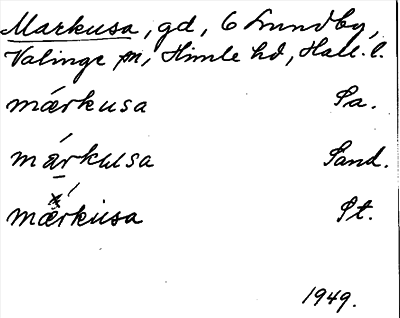 Markusa, gd, 6 Lundby,
Valinge sn, Himle hd, Hall. l.
márkusa Sa.
márkusa Sand.
mǽrkusa St.
1949.